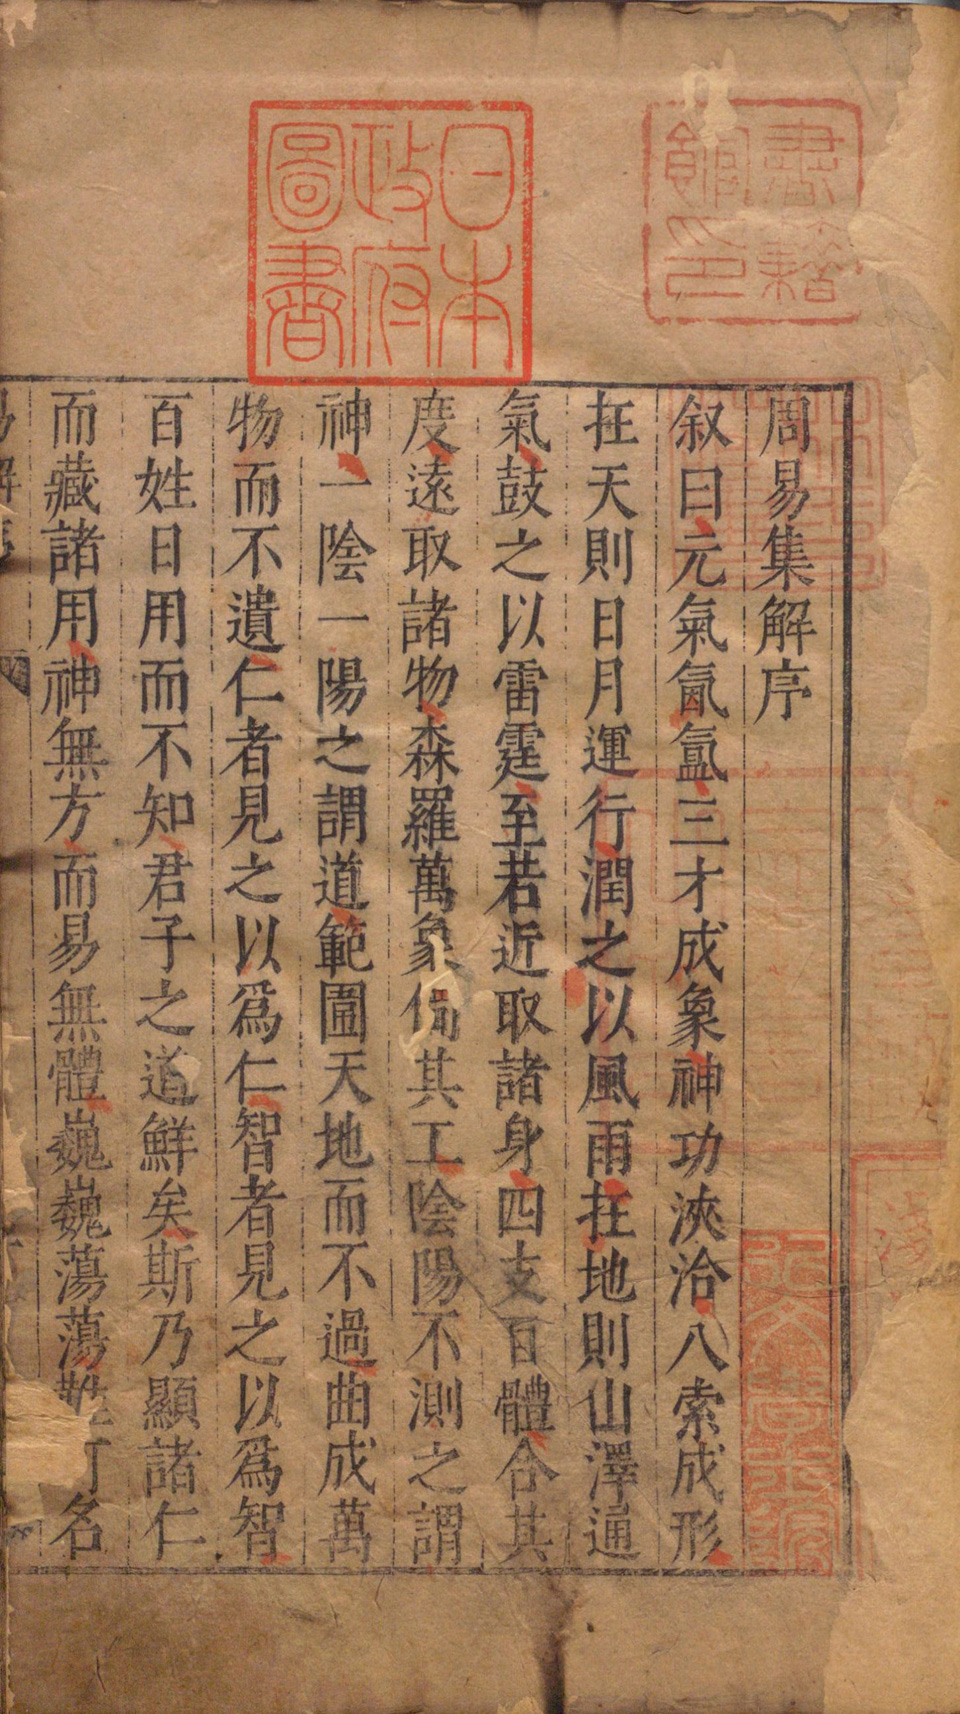 周易集解序
叙曰元氣氤氳三才成象神功浹洽八索成形
在天則日月運行潤之以風雨在地則山澤通
氣鼓之以雷霆至若近取諸身四支百體合其
度遠取諸物森羅萬象備其工陰陽不測之謂
神一陰一陽之謂道範圍天地而不過曲成萬
物而不遺仁者見之以爲仁智者見之以爲智
百姓日用而不知君子之道鮮矣斯乃顯諸仁
而藏諸用神無方而易無體巍巍蕩蕩名
日本政府圖書
書籍館印
淺草文庫